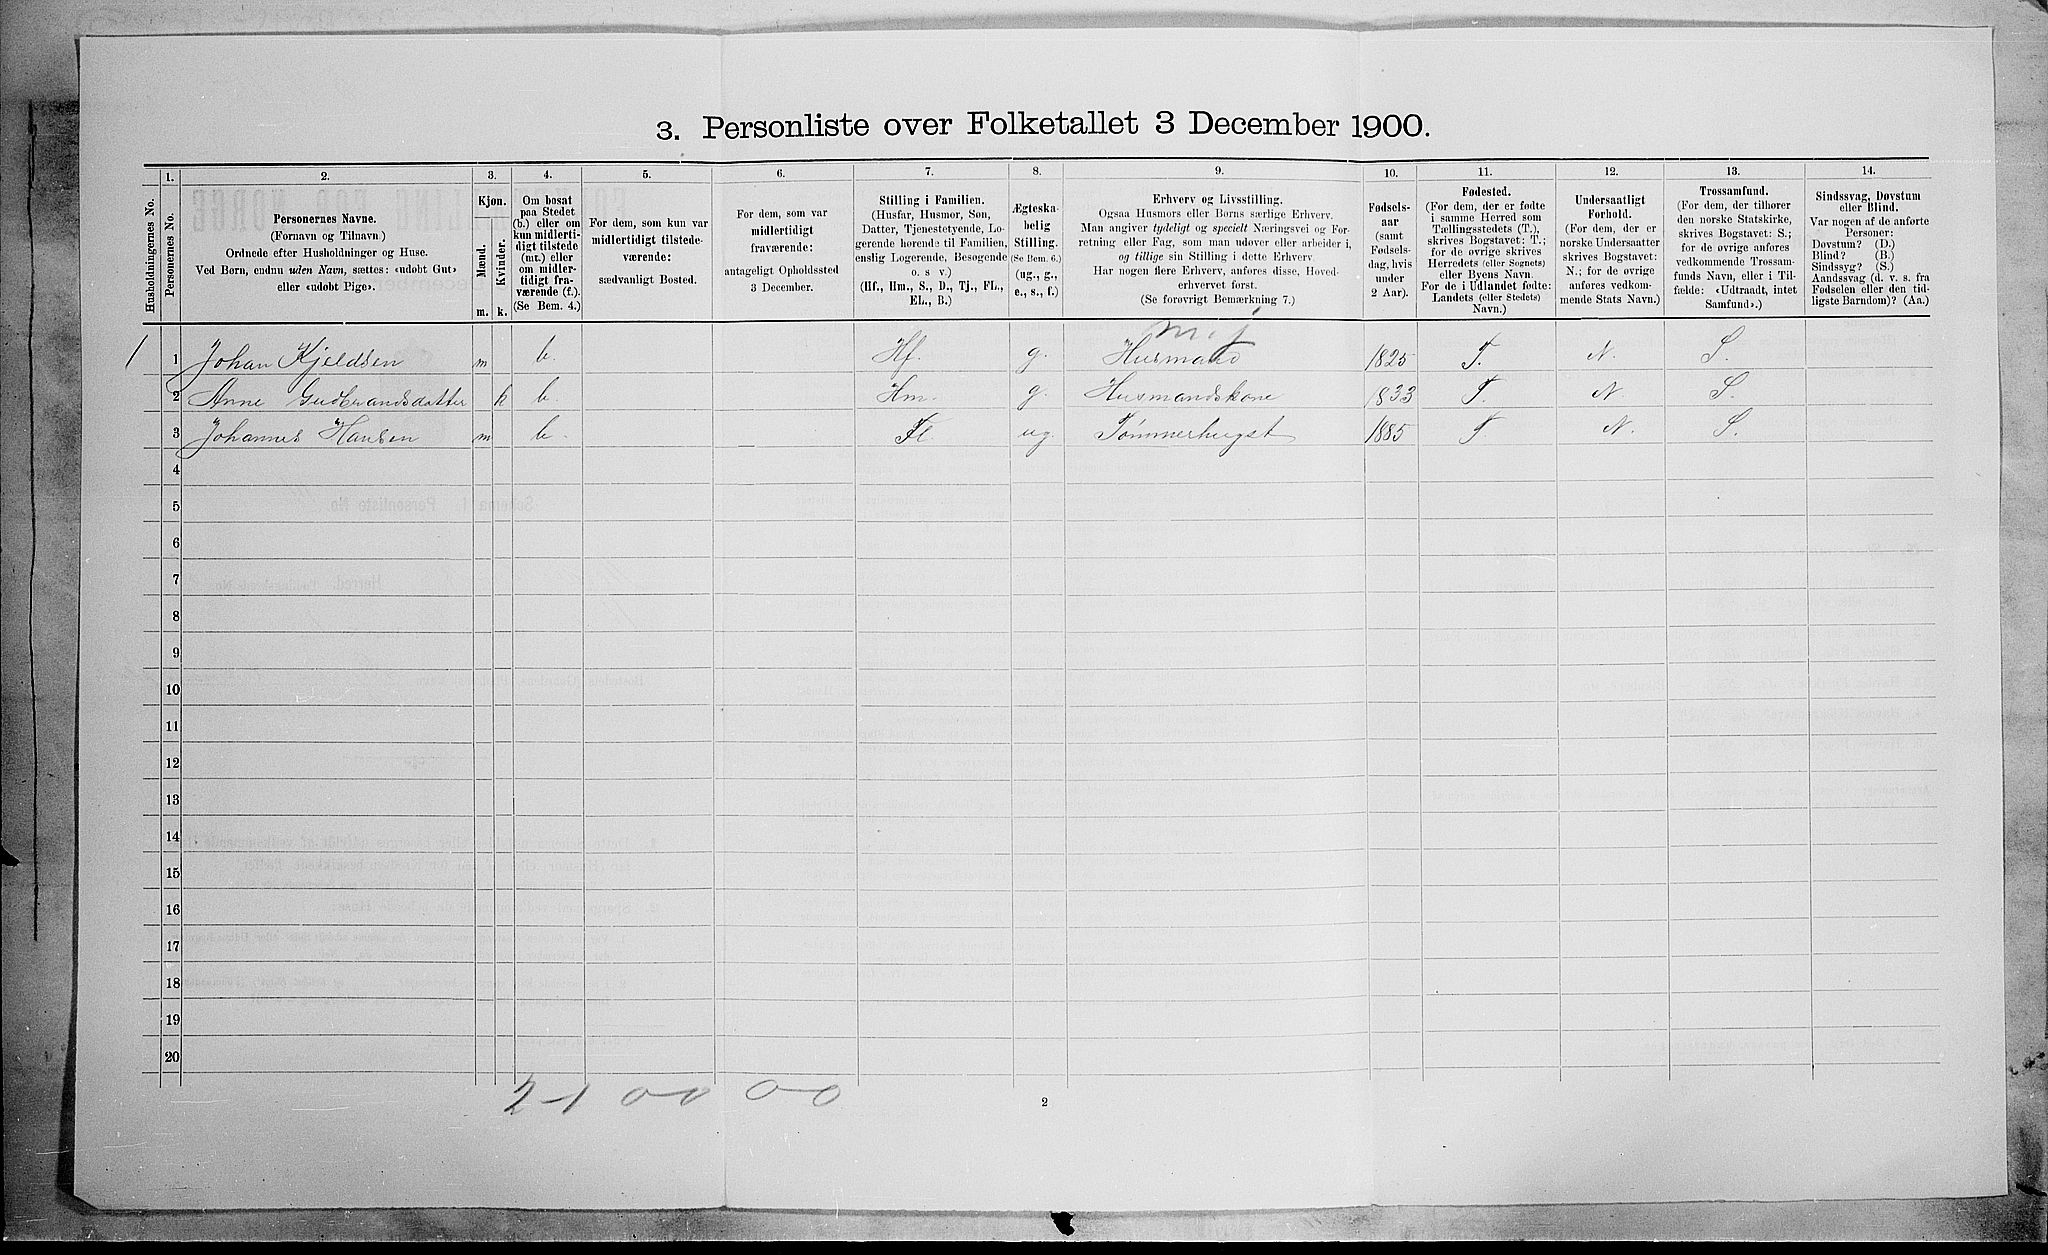 3. Personliste over Folketallet 3 December 1900.
Husholdningernes No.
1. Personernes No.
2.
Personernes Navne.
(Fornavn og Tilnavn)
Ordnede efter Husholdninger og Huse.
Ved Børn, endnu uden Navn, sættes: «udøbt Gut»
eller «udøbt Pige».
3.
Kjøn.
Mænd.
Kvinder.
m. k.
4.
Om bosat
paa Stedet
(b.) eller om
kun midlerti-
digt tilstede
(mt.) eller
om midler-
tidigt fra-
værende (f.).
(Se Bem. 4.)
5.
For dem, som kun var
midlertidigt tilstede-
værende:
sædvanligt Bosted.
6.
For dem, som var
midlertidigt
fraværende:
antageligt Opholdssted
3 December.
7.
Stilling i Familien.
(Husfar, Husmor, Søn,
Datter, Tjenestetyende, Lo-
gerende hørende til Familien,
enslig Logerende, Besøgende
o. s v.)
(Hf., Hm., S., D., Tj., FL.,
EL., B.)
8.
Ægteska-
belig
Stilling.
(Se Bem. 6.)
(ug., g.,
e., s., f.)
9.
Erhverv og Livsstilling.
Ogsaa Husmors eller Børns særlige Erhverv.
Man angiver tydeligt og specielt Næringsvei og For-
retning eller Fag, som man udøver eller arbeider i,
og tillige sin Stilling i dette Erhverv.
Har nogen flere Erhverv, anføres disse, Hoved-
erhvervet først.
(Se forøvrigt Bemærkning 7.)
10.
Fødsels-
aar
(samt
Fødsels-
dag, hvis
under
2 Aar).
11.
Fødested.
(For dem, der er fødte
i samme Herred som
Tællingsstedets (T.),
skrives Bogstavet: T.;
for de øvrige skrives
Herredets (eller Sognets)
eller Byens Navn.
For de i Udlandet fødte:
Landets (eller Stedets)
Navn.)
12.
Undersaatligt
Forhold.
(For dem, der er
norske Undersaatter
skrives Bogstavet:
N.; for de øvrige
anføres vedkom-
mende Stats Navn.)
13.
Trossamfund.
(For dem, der tilhører
den norske Statskirke,
skrives Bogstavet: S.;
for de øvrige anføres
vedkommende Trossam-
funds Navn, eller i Til-
fælde: «Udtraadt, intet
Samfund».)
14.
Sindssvag, Døvstum
eller Blind.
Var nogen af de anførte
Personer:
Døvstum? (D.)
Blind? (B.)
Sindssyg? (S.)
Aandssvag (d. v. s. fra
Fødselen eller den tid-
ligste Barndom)? (Aa.)
1 1 Johan Kjeldsen m b. Hf. g. Husmand 1825 T. N. S.
2 Anne Gudbrandsdatter k b. Hm. g. Husmandskone 1833 T. N. S.
3 Johannes Hansen m b. Fl. ug. Tømmerhugst 1885 T. N. S.
4
5
6
7
8
9
10
11
12
13
14
15
16
17
18
19
20
2-1 00 0-0
2